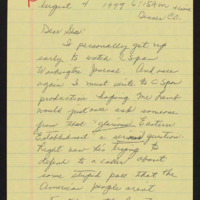 August 4 1999 6:15 am
Denver CO.
Dear Sir:
I personally get up
early to watch C Span
Washington Journal. And once
again I must write to C-Span
production hoping the host
would just once ask someone
from that "glorious" Eastern
Established a serious question
Right now he's trying to
defend to a caller about
some stupid pass that the
American people arent